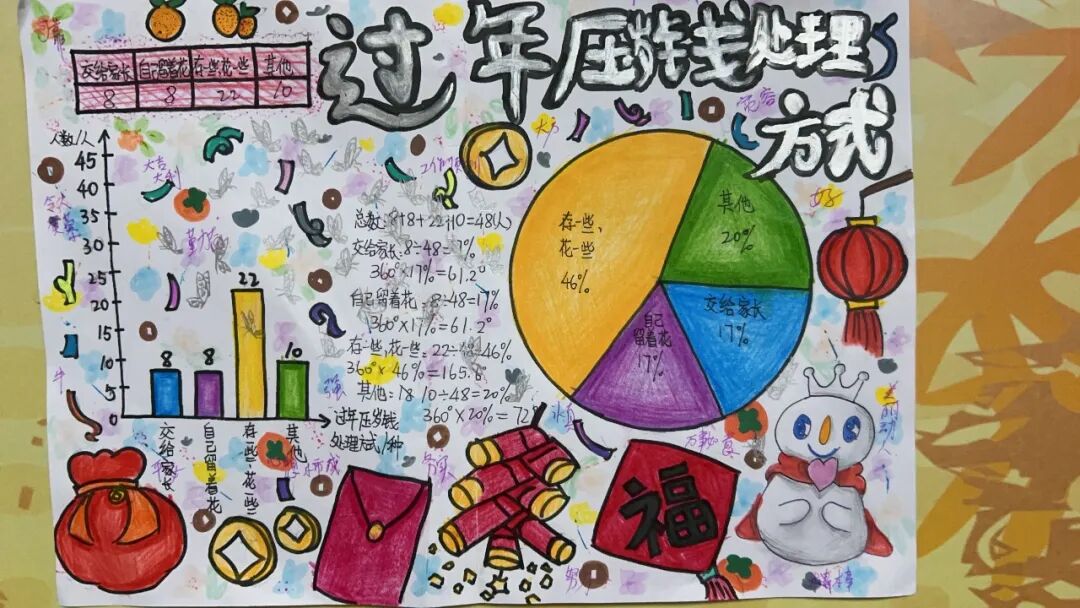 过年压岁钱处理
方式
交给家长 自己留着花 存一些,花一些 其他
8 8 22 10
人数/人
45
40
35
30
25
20
15
10
5
0
8 8 22 10
交给家长
自己留着花
存一些花一些
其他
过年压岁钱
处理方式/种
大吉
大利
总数:8+8+22+10=48(人)
交给家长:8÷48=17%
360°×17%=61.2°
自己留着花:8÷48=17%
360°×17%=61.2°
存一些,花一些:22÷48=46%
360°×46%=165.6°
其他:18 10÷48=20%
360°×20%=72°
存一些、
花一些
46%
其他
20%
交给家长
17%
自己
留着花
17%
好
牛
福